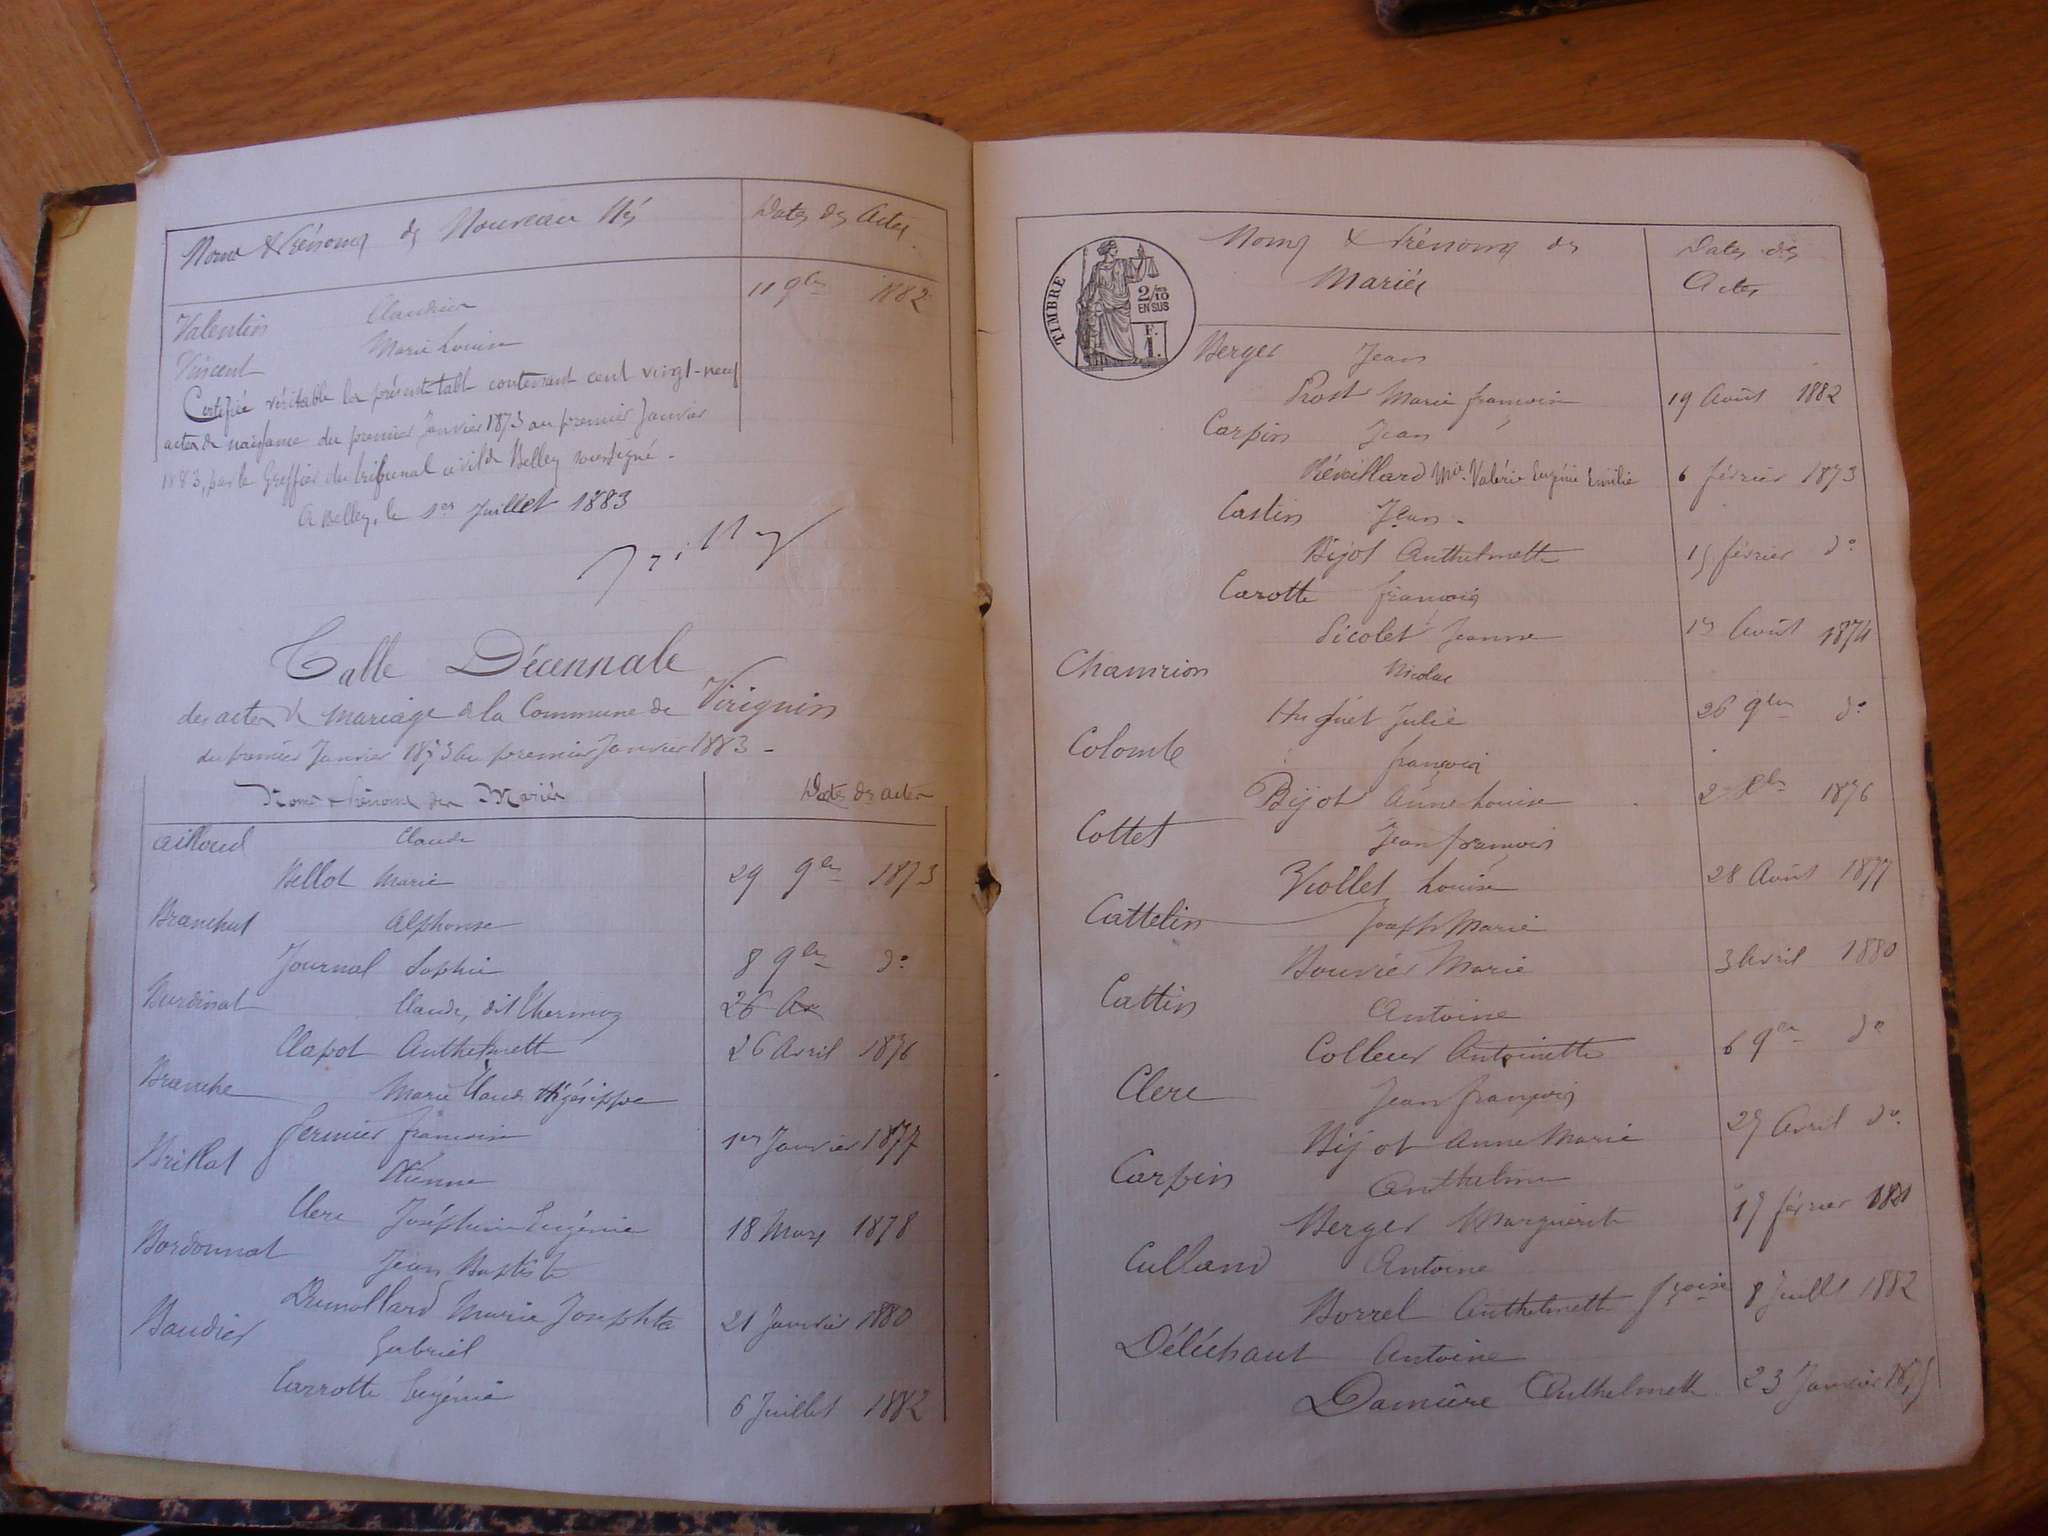 Noms & Prénoms des Nouveau Nés
Dates des Actes.
Valentin Claudien 11 9bre 1882
Vincent Marie Louise
Certifiée véritable la présente table contenant cent vingt-neuf
actes de naissance du premier Janvier 1873 au premier Janvier
1883, par le Greffier du tribunal civil de Belley soussigné.
A Belley, le 1er Juillet 1883
Table Décennale
des actes de mariage de la Commune de Virignin
du premier Janvier 1873 au premier Janvier 1883 -
Noms & Prénoms des Mariés
Dates des actes
Ailloud Claude
Bellot Marie 29 9bre 1873
Branchut Alphonse
Journal Sophie 8 9bre do
Burdinat Claude, dit Thermoz 26 Av
Clapot Anthelmette 26 Avril 1876
Branche Marie Claude Higésippe
Fermier françoise 1er Janvier 1877
Brillat Etienne
Clerc Joséphine Eugénie 18 Mars 1878
Bordonnat Jean Baptiste
Dumollard Marie Josephte 21 Janvier 1880
Baudier Gabriel
Carrotte Eugénie 6 Juillet 1882
TIMBRE
2/10 EN SUS
F. 1.
Noms & Prénoms des
Mariés
Dates des
Actes
Berger Jean
Prost Marie françoise 19 Août 1882
Carpin Jean
Réveillard Mie Valérie Eugénie Emilie 6 février 1873
Castin Jean -
Bijot Anthelmette 15 février do
Carotte françois
Picolet Jeanne Août 1874
Chamrion Nicolas
Huguet Julie 26 9bre do
Colomb françois
Bijot Anne Louise 2 Xbre 1876
Cottet Jean françois
Viollet Louise 28 Août 1877
Cattelin Joseph Marie
Bouvier Marie 3 Avril 1880
Cattin Antoine
Colleur Antoinette 6 9bre do
Clerc Jean françois
Bijot Anne Marie Avril do
Carpin Anthelme
Berger Marguerite février
Culland Antoine
Borrel Anthelmette fçoise 8 Juillet 1882
Déléchaut Antoine
Damière Anthelmette 23 Janvier